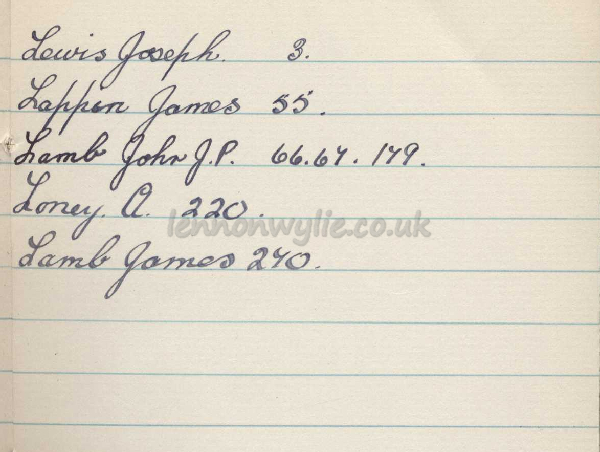 Lewis Joseph. 3.
Lappin James 55.
Lamb John J.P. 66.67. 179.
Loney. A. 220.
lennonwylie.co.uk
Lamb James 240.